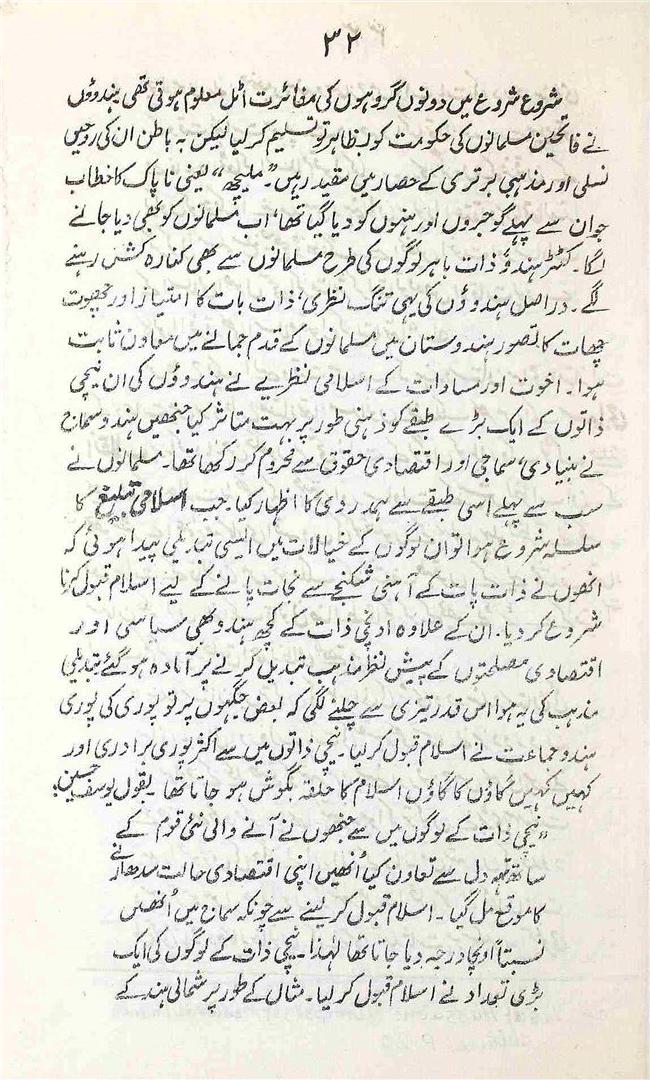 ۳۲
شروع شروع میں دونوں گروہوں کی مغائرت اٹل معلوم ہوتی تھی ہندوؤں
نے فاتحین مسلمانوں کی حکومت کو بظاہر تو تسلیم کر لیا لیکن بہ باطن ان کی روحیں
نسلی اور مذہبی برتری کے حصار میں مقید رہیں۔ ”ملیچھ“ یعنی ناپاک کا خطاب
جو ان سے پہلے گوجروں اور ہنوں کو دیا گیا تھا، اب مسلمانوں کو بھی دیا جانے
لگا۔ کٹر ہندو ذات باہر لوگوں کی طرح مسلمانوں سے بھی کنارہ کش رہنے
لگے۔ دراصل ہندوؤں کی یہی تنگ نظری، ذات بات کا امتیاز اور چھوت
چھات کا تصور ہندوستان میں مسلمانوں کے قدم جمانے میں معاون ثابت
ہوا۔ اخوت اور مساوات کے اسلامی نظریے نے ہندوؤں کی ان نیچی
ذاتوں کے ایک بڑے طبقے کو ذہنی طور پر بہت متاثر کیا جنھیں ہندو سماج
نے بنیادی، سماجی اور اقتصادی حقوق سے محروم کر رکھا تھا۔ مسلمانوں نے
سب سے پہلے اسی طبقے سے ہمدردی کا اظہار کیا۔ جب اسلامی تبلیغ کا
سلسلہ شروع ہوا تو ان لوگوں کے خیالات میں ایسی تبدیلی پیدا ہوئی کہ
انھوں نے ذات پات کے آہنی شکنجے سے نجات پانے کے لیے اسلام قبول کرنا
شروع کر دیا۔ ان کے علاوہ اونچی ذات کے کچھ ہندو بھی سیاسی اور
اقتصادی مصلحتوں کے پیش نظر مذہب تبدیل کرنے پر آمادہ ہو گئے تبدیلی
مذہب کی یہ ہوا اس قدر تیزی سے چلنے لگی کہ بعض جگہوں پر تو پوری کی پوری
ہندو جماعت نے اسلام قبول کر لیا۔ نیچی ذاتوں میں سے اکثر پوری برادری اور
کہیں کہیں گاؤں کا گاؤں اسلام کا حلقہ بگوش ہو جاتا تھا۔ بقول یوسف حسین:
”نیچی ذات کے لوگوں میں سے جنھوں نے آنے والی نئی قوم کے
ساتھ تہہ دل سے تعاون کیا اُنھیں اپنی اقتصادی حالت سدھارنے
کا موقع مل گیا۔ اسلام قبول کر لینے سے چونکہ سماج میں اُنھیں
نسبتاً اونچا درجہ دیا جاتا تھا لہٰذا۔ نیچی ذات کے لوگوں کی ایک
بڑی تعداد نے اسلام قبول کر لیا۔ مثال کے طور پر شمالی ہند کے